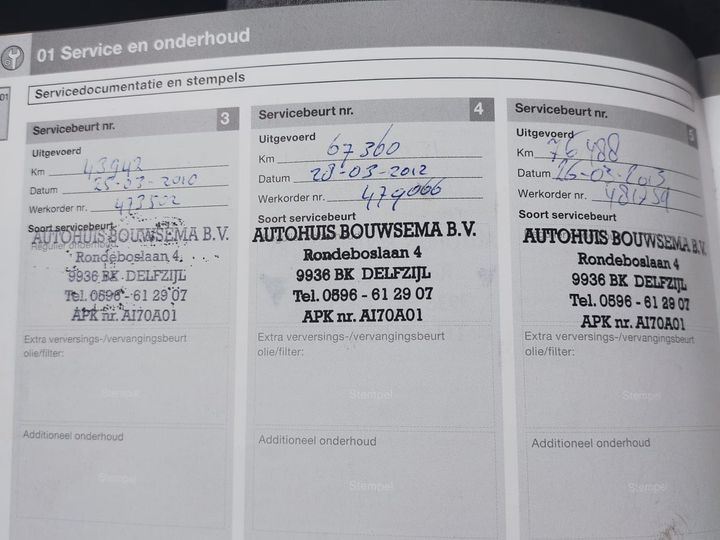 01 Service en onderhoud
Servicedocumentatie en stempels
01
Servicebeurt nr. 3
Uitgevoerd
Km 43942
Datum 25-03-2010
Werkorder nr.
Soort servicebeurt
AUTOHUIS BOUWSEMA B.V.
Rondeboslaan 4
9936 BK DELFZIJL
Tel. 0596 - 61 29 07
APK nr. AI70A01
Extra verversings-/vervangingsbeurt
olie/filter:
Stempel
Additioneel onderhoud
Stempel
Servicebeurt nr. 4
Uitgevoerd
Km 67360
Datum 28-03-2012
Werkorder nr. 479066
Soort servicebeurt
AUTOHUIS BOUWSEMA B.V.
Rondeboslaan 4
9936 BK DELFZIJL
Tel. 0596 - 61 29 07
APK nr. AI70A01
Extra verversings-/vervangingsbeurt
olie/filter:
Stempel
Additioneel onderhoud
Stempel
Servicebeurt nr. 5
Uitgevoerd
Km 76488
Datum
Werkorder nr.
Soort servicebeurt
AUTOHUIS BOUWSEMA B.V.
Rondeboslaan 4
9936 BK DELFZIJL
Tel. 0596 - 61 29 07
APK nr. AI70A01
Extra verversings-/vervangingsbeurt
olie/filter:
Stempel
Additioneel onderhoud
Stempel